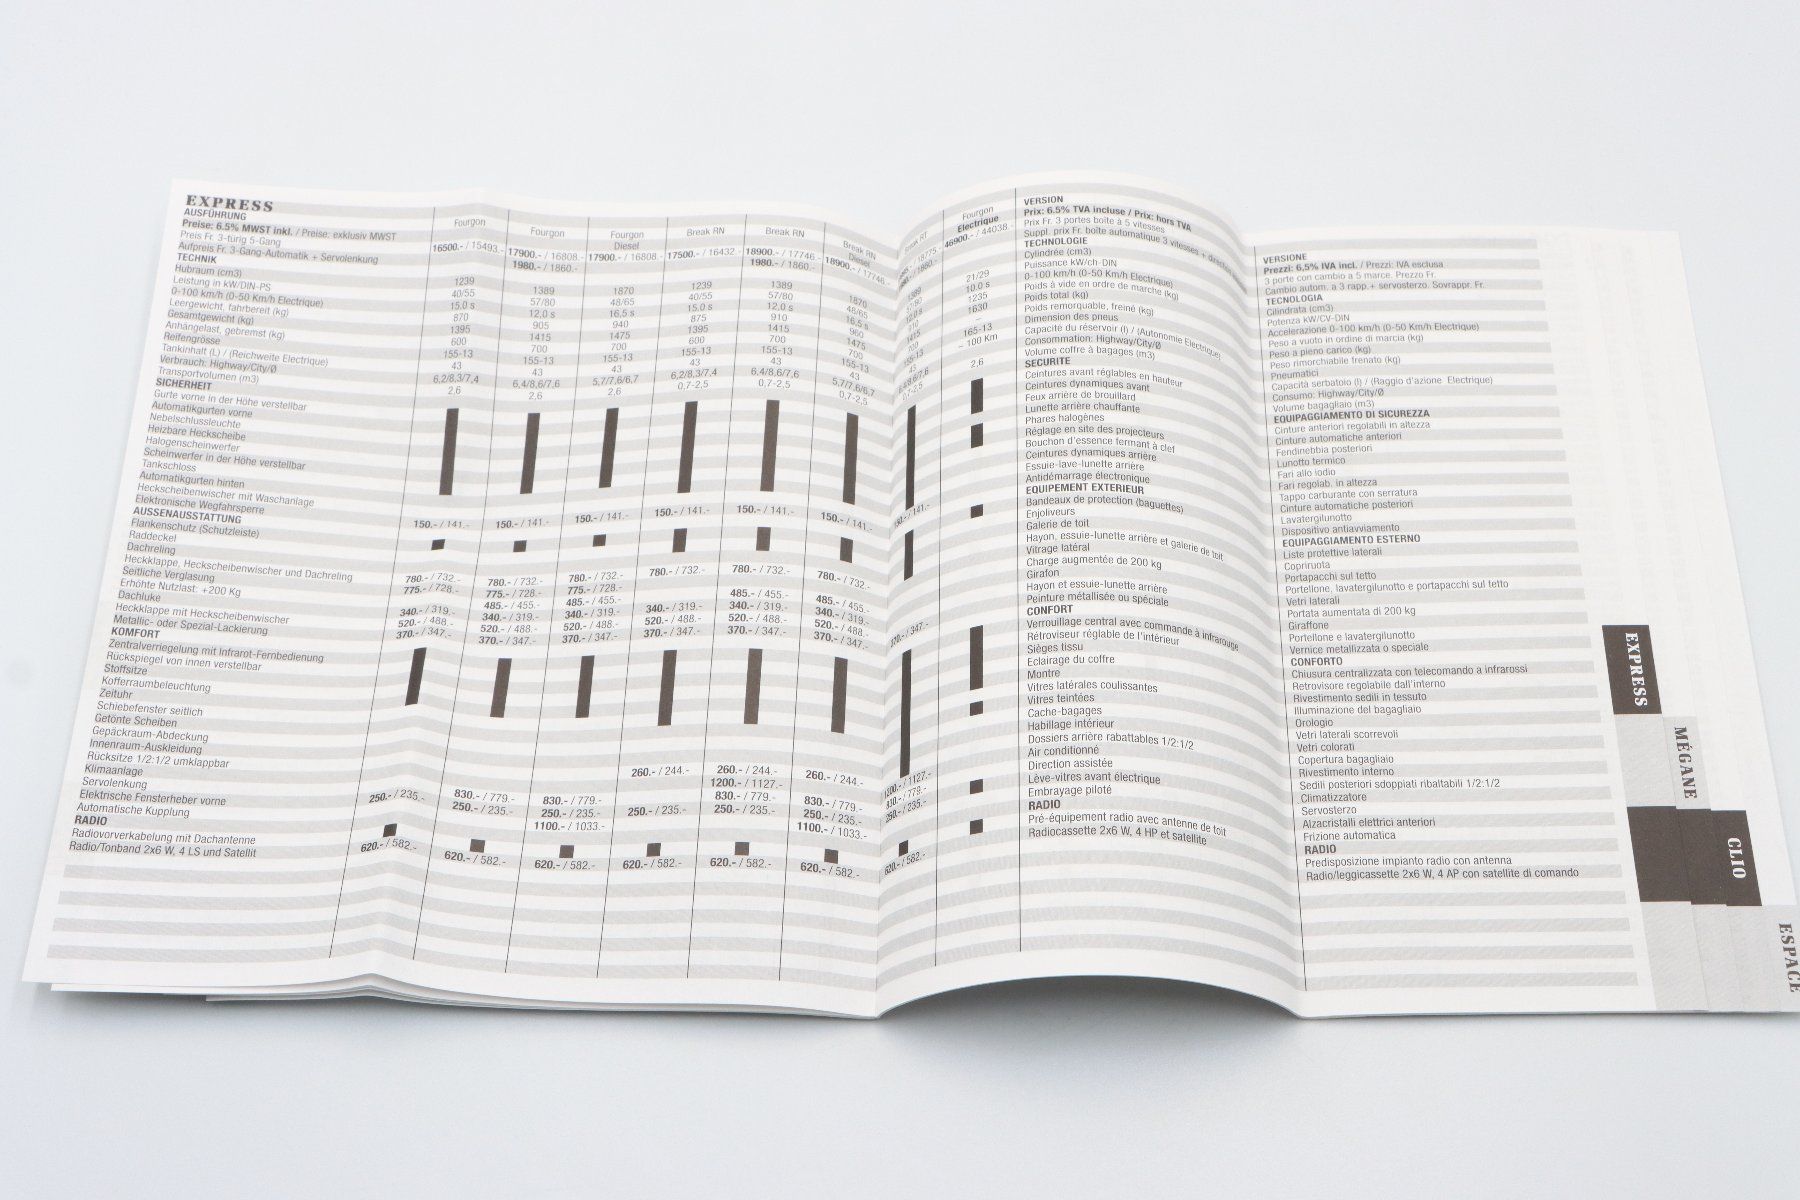 EXPRESS
AUSFÜHRUNG
Preise: 6.5% MWST inkl. / Preise: exklusiv MWST
Preis Fr. 3-türig 5-Gang
Aufpreis Fr. 3-Gang-Automatik + Servolenkung
TECHNIK
Hubraum (cm3)
Leistung in kW/DIN-PS
0-100 km/h (0-50 Km/h Electrique)
Leergewicht, fahrbereit (kg)
Gesamtgewicht (kg)
Anhängelast, gebremst (kg)
Reifengrösse
Tankinhalt (L) / (Reichweite Electrique)
Verbrauch: Highway/City/Ø
Transportvolumen (m3)
SICHERHEIT
Gurte vorne in der Höhe verstellbar
Automatikgurten vorne
Nebelschlussleuchte
Heizbare Heckscheibe
Halogenscheinwerfer
Scheinwerfer in der Höhe verstellbar
Tankschloss
Automatikgurten hinten
Heckscheibenwischer mit Waschanlage
Elektronische Wegfahrsperre
AUSSENAUSSTATTUNG
Flankenschutz (Schutzleiste)
Raddeckel
Dachreling
Heckklappe, Heckscheibenwischer und Dachreling
Seitliche Verglasung
Erhöhte Nutzlast: +200 Kg
Dachluke
Heckklappe mit Heckscheibenwischer
Metallic- oder Spezial-Lackierung
KOMFORT
Zentralverriegelung mit Infrarot-Fernbedienung
Rückspiegel von innen verstellbar
Stoffsitze
Kofferraumbeleuchtung
Zeituhr
Schiebefenster seitlich
Getönte Scheiben
Gepäckraum-Abdeckung
Innenraum-Auskleidung
Rücksitze 1/2:1/2 umklappbar
Klimaanlage
Servolenkung
Elektrische Fensterheber vorne
Automatische Kupplung
RADIO
Radiovorverkabelung mit Dachantenne
Radio/Tonband 2x6 W, 4 LS und Satellit
Fourgon
16500.- / 15493.-
1239
40/55
15.0 s
870
1395
600
155-13
43
6,2/8,3/7,4
2,6
150.- / 141.-
780.- / 732.-
775.- / 728.-
340.- / 319.-
520.- / 488.-
370.- / 347.-
250.- / 235.-
620.- / 582.-
Fourgon
17900.- / 16808.-
1980.- / 1860.-
1389
57/80
12,0 s
905
1415
700
155-13
43
6,4/8,6/7,6
2,6
150.- / 141.-
780.- / 732.-
775.- / 728.-
485.- / 455.-
340.- / 319.-
520.- / 488.-
370.- / 347.-
830.- / 779.-
250.- / 235.-
620.- / 582.-
Fourgon
Diesel
17900.- / 16808.-
1870
48/65
16,5 s
940
1475
700
155-13
43
5,7/7,6/6,7
2,6
150.- / 141.-
780.- / 732.-
775.- / 728.-
485.- / 455.-
340.- / 319.-
520.- / 488.-
370.- / 347.-
830.- / 779.-
250.- / 235.-
1100.- / 1033.-
620.- / 582.-
Break RN
17500.- / 16432.-
1239
40/55
15.0 s
875
1395
600
155-13
43
6,2/8,3/7,4
0,7-2,5
150.- / 141.-
780.- / 732.-
340.- / 319.-
520.- / 488.-
370.- / 347.-
260.- / 244.-
250.- / 235.-
620.- / 582.-
Break RN
18900.- / 17746.-
1980.- / 1860.-
1389
57/80
12,0 s
910
1415
700
155-13
43
6,4/8,6/7,6
0,7-2,5
150.- / 141.-
780.- / 732.-
485.- / 455.-
340.- / 319.-
520.- / 488.-
370.- / 347.-
260.- / 244.-
1200.- / 1127.-
830.- / 779.-
250.- / 235.-
620.- / 582.-
Break RN
Diesel
18900.- / 17746.-
1870
48/65
16,5 s
960
1475
700
155-13
43
5,7/7,6/6,7
0,7-2,5
150.- / 141.-
780.- / 732.-
485.- / 455.-
340.- / 319.-
520.- / 488.-
370.- / 347.-
260.- / 244.-
830.- / 779.-
250.- / 235.-
1100.- / 1033.-
620.- / 582.-
Break RT
/ 18775.-
/ 1860.-
1389
57/80
12,0 s
910
1415
700
155-13
43
6,4/8,6/7,6
0,7-2,5
/ 141.-
370.- / 347.-
1200.- / 1127.-
830.- / 779.-
250.- / 235.-
620.- / 582.-
Fourgon
Electrique
46900.- / 44038.-
21/29
10.0 s
1235
1630
–
165-13
~ 100 Km
2,6
VERSION
Prix: 6.5% TVA incluse / Prix: hors TVA
Prix Fr. 3 portes boîte à 5 vitesses
Suppl. prix Fr. boîte automatique 3 vitesses + direction
TECHNOLOGIE
Cylindrée (cm3)
Puissance kW/ch-DIN
0-100 km/h (0-50 Km/h Electrique)
Poids à vide en ordre de marche (kg)
Poids total (kg)
Poids remorquable, freiné (kg)
Dimension des pneus
Capacité du réservoir (l) / (Autonomie Electrique)
Consommation: Highway/City/Ø
Volume coffre à bagages (m3)
SECURITE
Ceintures avant réglables en hauteur
Ceintures dynamiques avant
Feux arrière de brouillard
Lunette arrière chauffante
Phares halogènes
Réglage en site des projecteurs
Bouchon d'essence fermant à clef
Ceintures dynamiques arrière
Essuie-lave-lunette arrière
Antidémarrage électronique
EQUIPEMENT EXTERIEUR
Bandeaux de protection (baguettes)
Enjoliveurs
Galerie de toit
Hayon, essuie-lunette arrière et galerie de toit
Vitrage latéral
Charge augmentée de 200 kg
Girafon
Hayon et essuie-lunette arrière
Peinture métallisée ou spéciale
CONFORT
Verrouillage central avec commande à infrarouge
Rétroviseur réglable de l'intérieur
Sièges tissu
Eclairage du coffre
Montre
Vitres latérales coulissantes
Vitres teintées
Cache-bagages
Habillage intérieur
Dossiers arrière rabattables 1/2:1/2
Air conditionné
Direction assistée
Lève-vitres avant électrique
Embrayage piloté
RADIO
Pré-équipement radio avec antenne de toit
Radiocassette 2x6 W, 4 HP et satellite
VERSIONE
Prezzi: 6,5% IVA incl. / Prezzi: IVA esclusa
3 porte con cambio a 5 marce. Prezzo Fr.
Cambio autom. a 3 rapp.+ servosterzo. Sovrappr. Fr.
TECNOLOGIA
Cilindrata (cm3)
Potenza kW/CV-DIN
Accelerazione 0-100 km/h (0-50 Km/h Electrique)
Peso a vuoto in ordine di marcia (kg)
Peso a pieno carico (kg)
Peso rimorchiabile frenato (kg)
Pneumatici
Capacità serbatoio (l) / (Raggio d'azione Electrique)
Consumo: Highway/City/Ø
Volume bagagliaio (m3)
EQUIPAGGIAMENTO DI SICUREZZA
Cinture anteriori regolabili in altezza
Cinture automatiche anteriori
Fendinebbia posteriori
Lunotto termico
Fari allo iodio
Fari regolab. in altezza
Tappo carburante con serratura
Cinture automatiche posteriori
Lavatergilunotto
Dispositivo antiavviamento
EQUIPAGGIAMENTO ESTERNO
Liste protettive laterali
Copriruota
Portapacchi sul tetto
Portellone, lavatergilunotto e portapacchi sul tetto
Vetri laterali
Portata aumentata di 200 kg
Giraffone
Portellone e lavatergilunotto
Vernice metallizzata o speciale
CONFORTO
Chiusura centralizzata con telecomando a infrarossi
Retrovisore regolabile dall'interno
Rivestimento sedili in tessuto
Illuminazione del bagagliaio
Orologio
Vetri laterali scorrevoli
Vetri colorati
Copertura bagagliaio
Rivestimento interno
Sedili posteriori sdoppiati ribaltabili 1/2:1/2
Climatizzatore
Servosterzo
Alzacristalli elettrici anteriori
Frizione automatica
RADIO
Predisposizione impianto radio con antenna
Radio/leggicassette 2x6 W, 4 AP con satellite di comando
EXPRESS
MÉGANE
CLIO
ESPACE